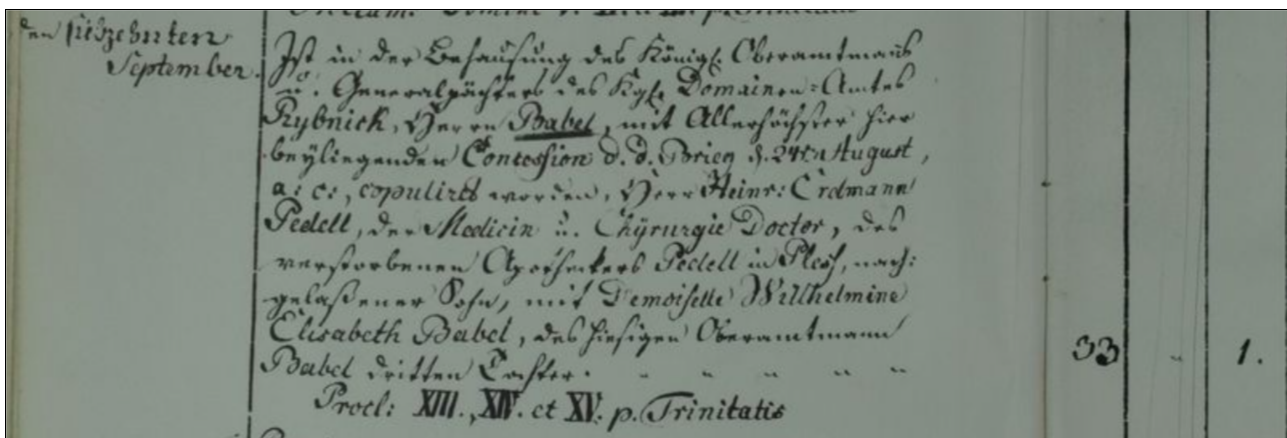 den siebzehnten
September.
Ist in der Behausung des Königl. Oberamtmanns
u. Generalpächters des Kgl. Domainen-Amtes
Rybnick, Herrn Babel, mit Allerhöchster hier
beyliegenden Concession d. d. Brieg d. 24ten August,
a: c:, copulirt worden, Herr Heinr: Erdmann
Pedell, der Medicin u. Chyrurgie Doctor, des
verstorbenen Apothekers Pedell in Pless, nach:
gelaßener Sohn, mit Demoiselle Wilhelmine
Elisabeth Babel, des hiesigen Oberamtmann
Babel dritten Tochter.
Procl: XIII., XIV. et XV. p. Trinitatis
33 " 1.